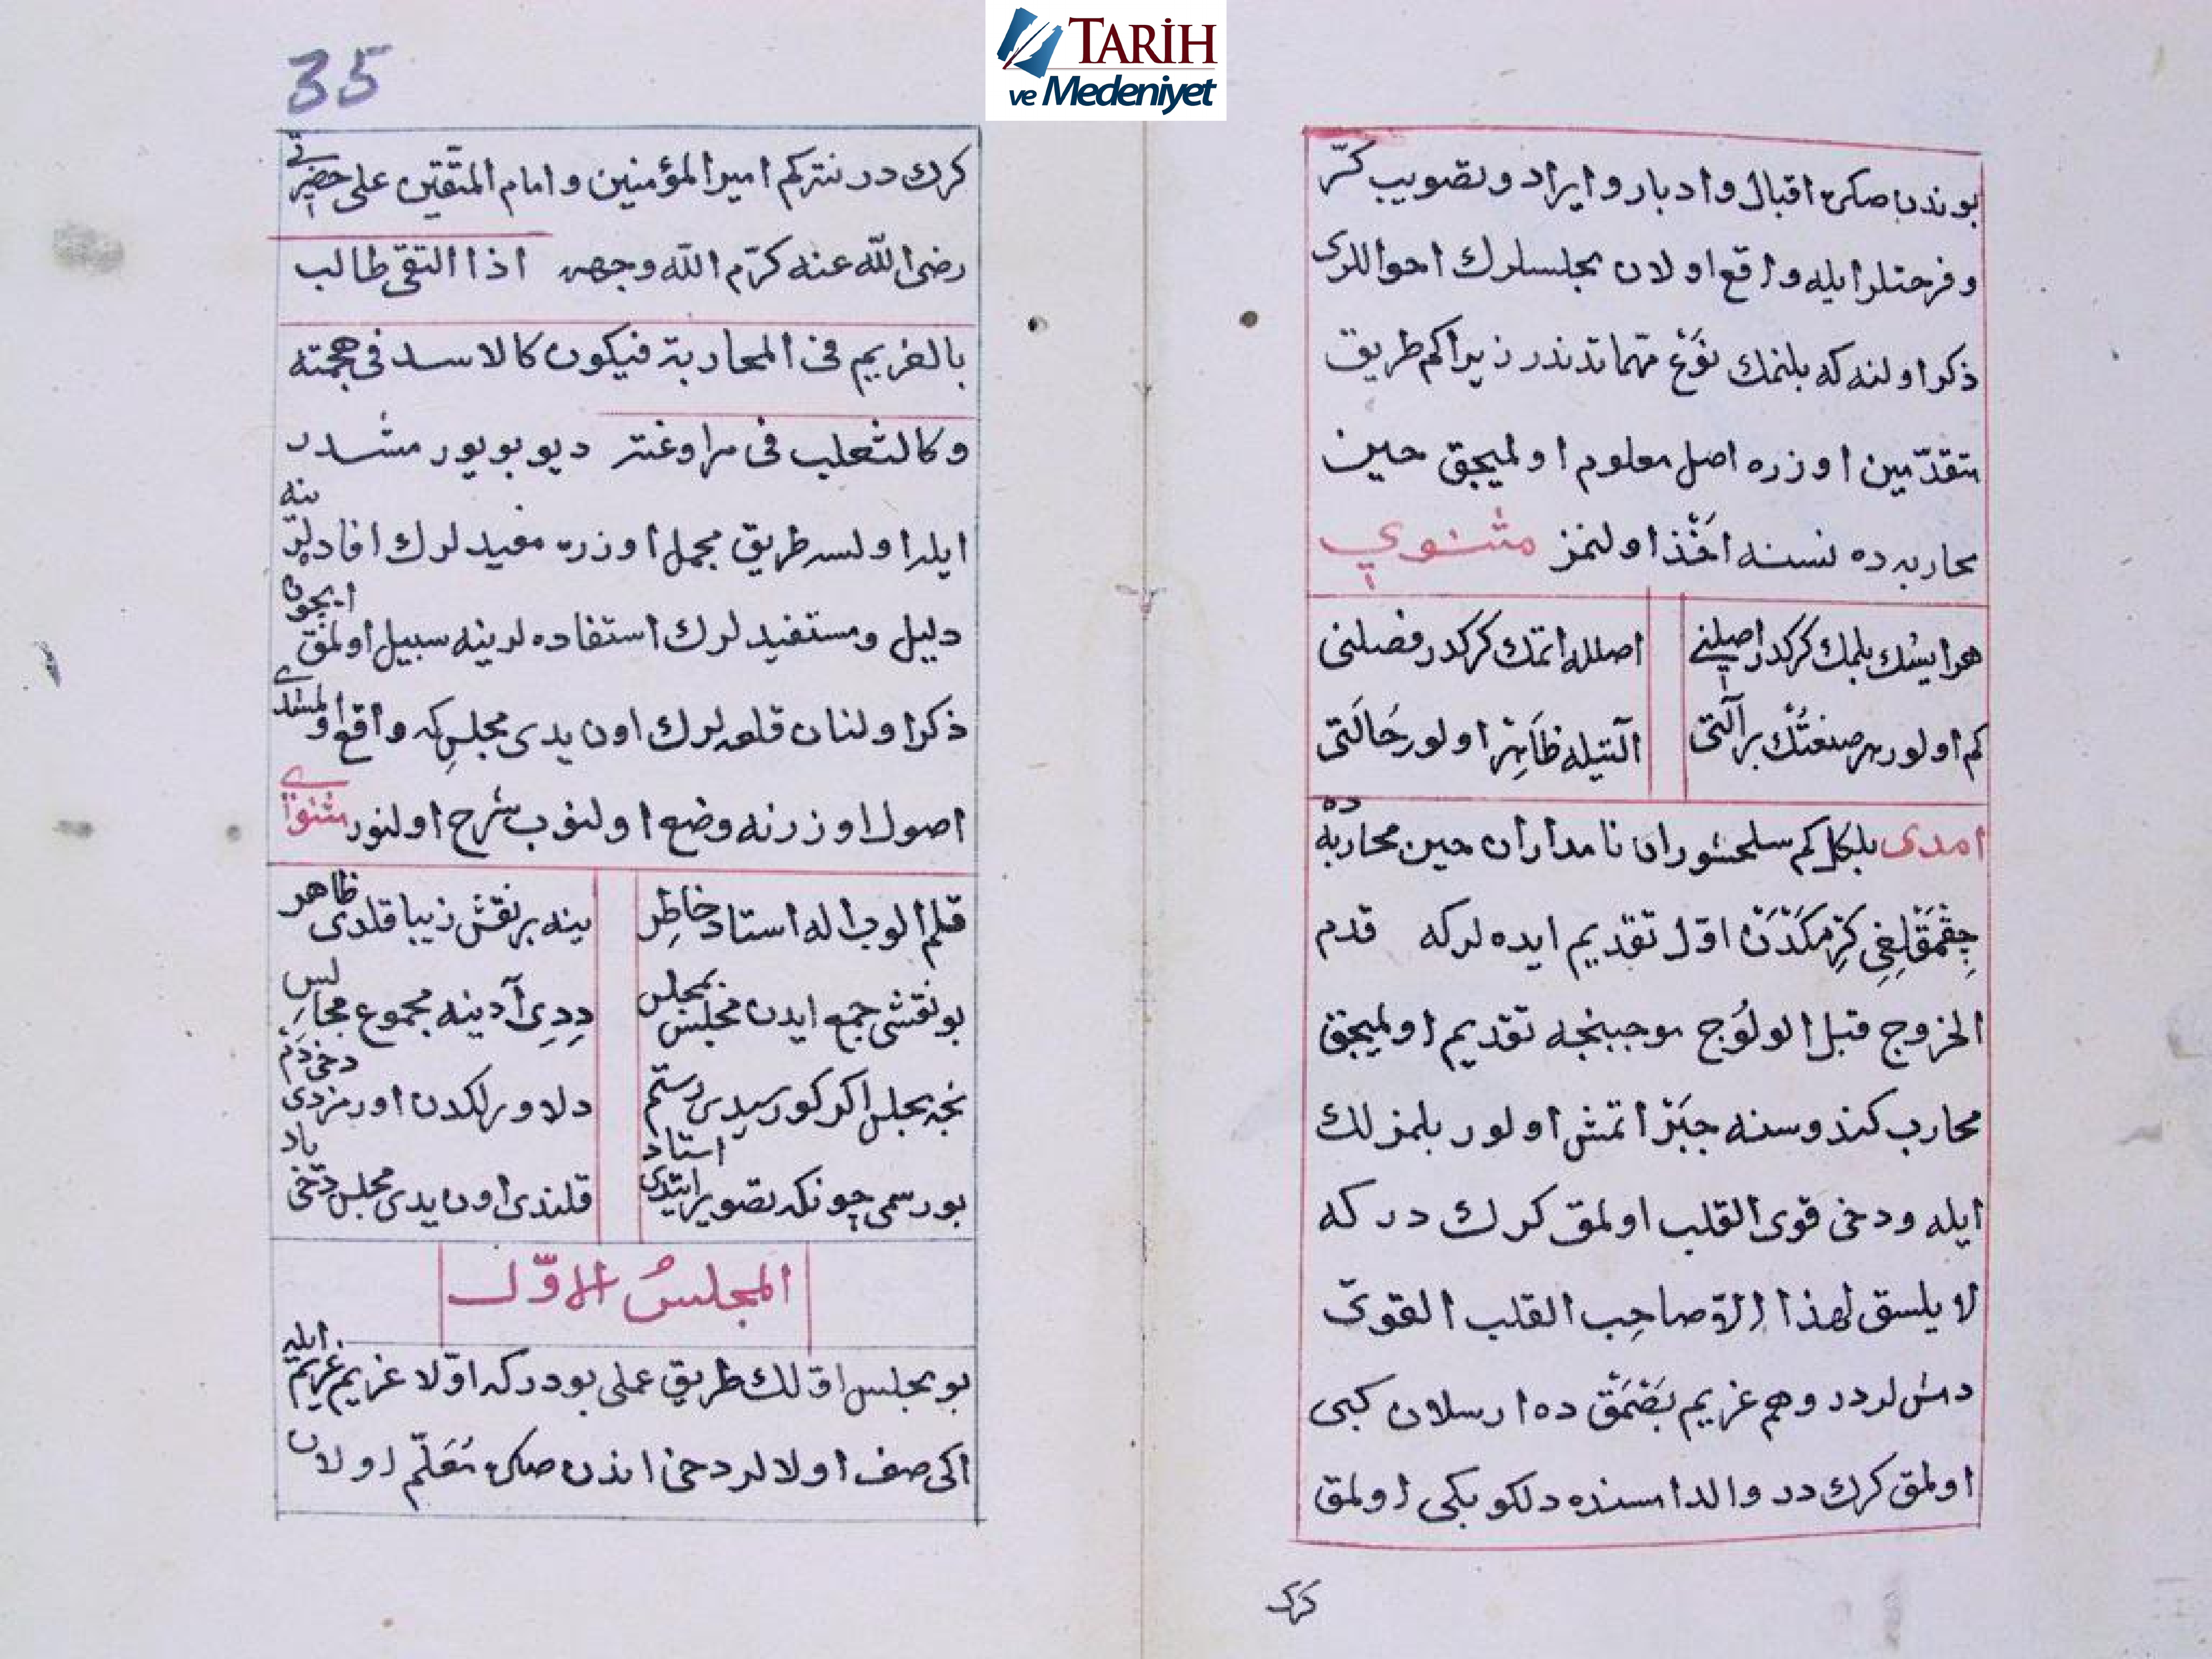 TARİH
ve Medeniyet
بوندن صكره اقبال و ادبار و ايراد و تصويب كرّ
و فرحتلر ايله واقع اولان مجلسلرك احواللرى
ذكر اولنه كه بلنمك نَوْع مهماتدندر زيرا كم طريق
متقدّمين اوزره اصل معلوم اولميجق حين
محاربه ده نسنه اَخْذ اولنمز مثنوي
هر ايشك بلمك كركدر اصلني اصلله اتمك كركدر فصلنى
كم اولور هر صنعتُك بر آلتى آلتيله ظاهِر اولور حَالَتى
امدى بلكل كم سلحشوران نامداران حين محاربه ده
چِقْمَقْلِغِى كِرْمَكَدَنْ اوّل تقديم ايده لر كه قدم
الخروج قبل الولُوج موجبنجه تقديم اولميجق
محارب كندوسنه جَبْر اتمش اولور بلمزلك
ايله و دخى قوى القلب اولمق كرك در كه
لا يلسق لهذا اِلاّ صاحِب القلب القوىّ
دمش لردر و هم غريم بَصْمَقْ ده ارسلان كبى
اولمق كرك در و الداسنده دلكو بكى اولمق
كرك
35
كرك در نتركم امير المؤمنين و امام المتّقين على حضرتى
رضى اللّه عنه كرّم اللّه وجهه اذا التقى طالب
بالغريم فى المحاربة فيكون كالاسد فى هجمته
و كالثعلب فى مراوغته ديو بويورمشدر
ايله اولسه طريق مجمل اوزره مفيدلرك افادەلرينه
دليل و مستفيدلرك استفاده لرينه سبيل اولمق ايچون
ذكر اولنان قلعه لرك اون يدى مجلسِ كه واقع اولمشدى
اصول اوزرنه وضع اولنوب شرح اولنور مثنوى
قلم الوب اله استاد خاطِر ينه بر نقش زيبا قلدى ظاهر
بو نقشى جمع ايدن مجلس بمجلس دِدِى آدينه مجموع مجالِس
نجه مجلس اكر كورسيدى رستم دلاورلكدن اورمزدى دخى دَم
بو رسمى چونكه تصوير ايتدى استاد قلندى اون يدى مجلس دخى ياد
المجلسُ الاوّل
بو مجلس اوّلك طريق عملى بودر كه اوّلا غريم غريم ايله
اكى صف اولالر دخى اندن صكره مُعَلّم اولان